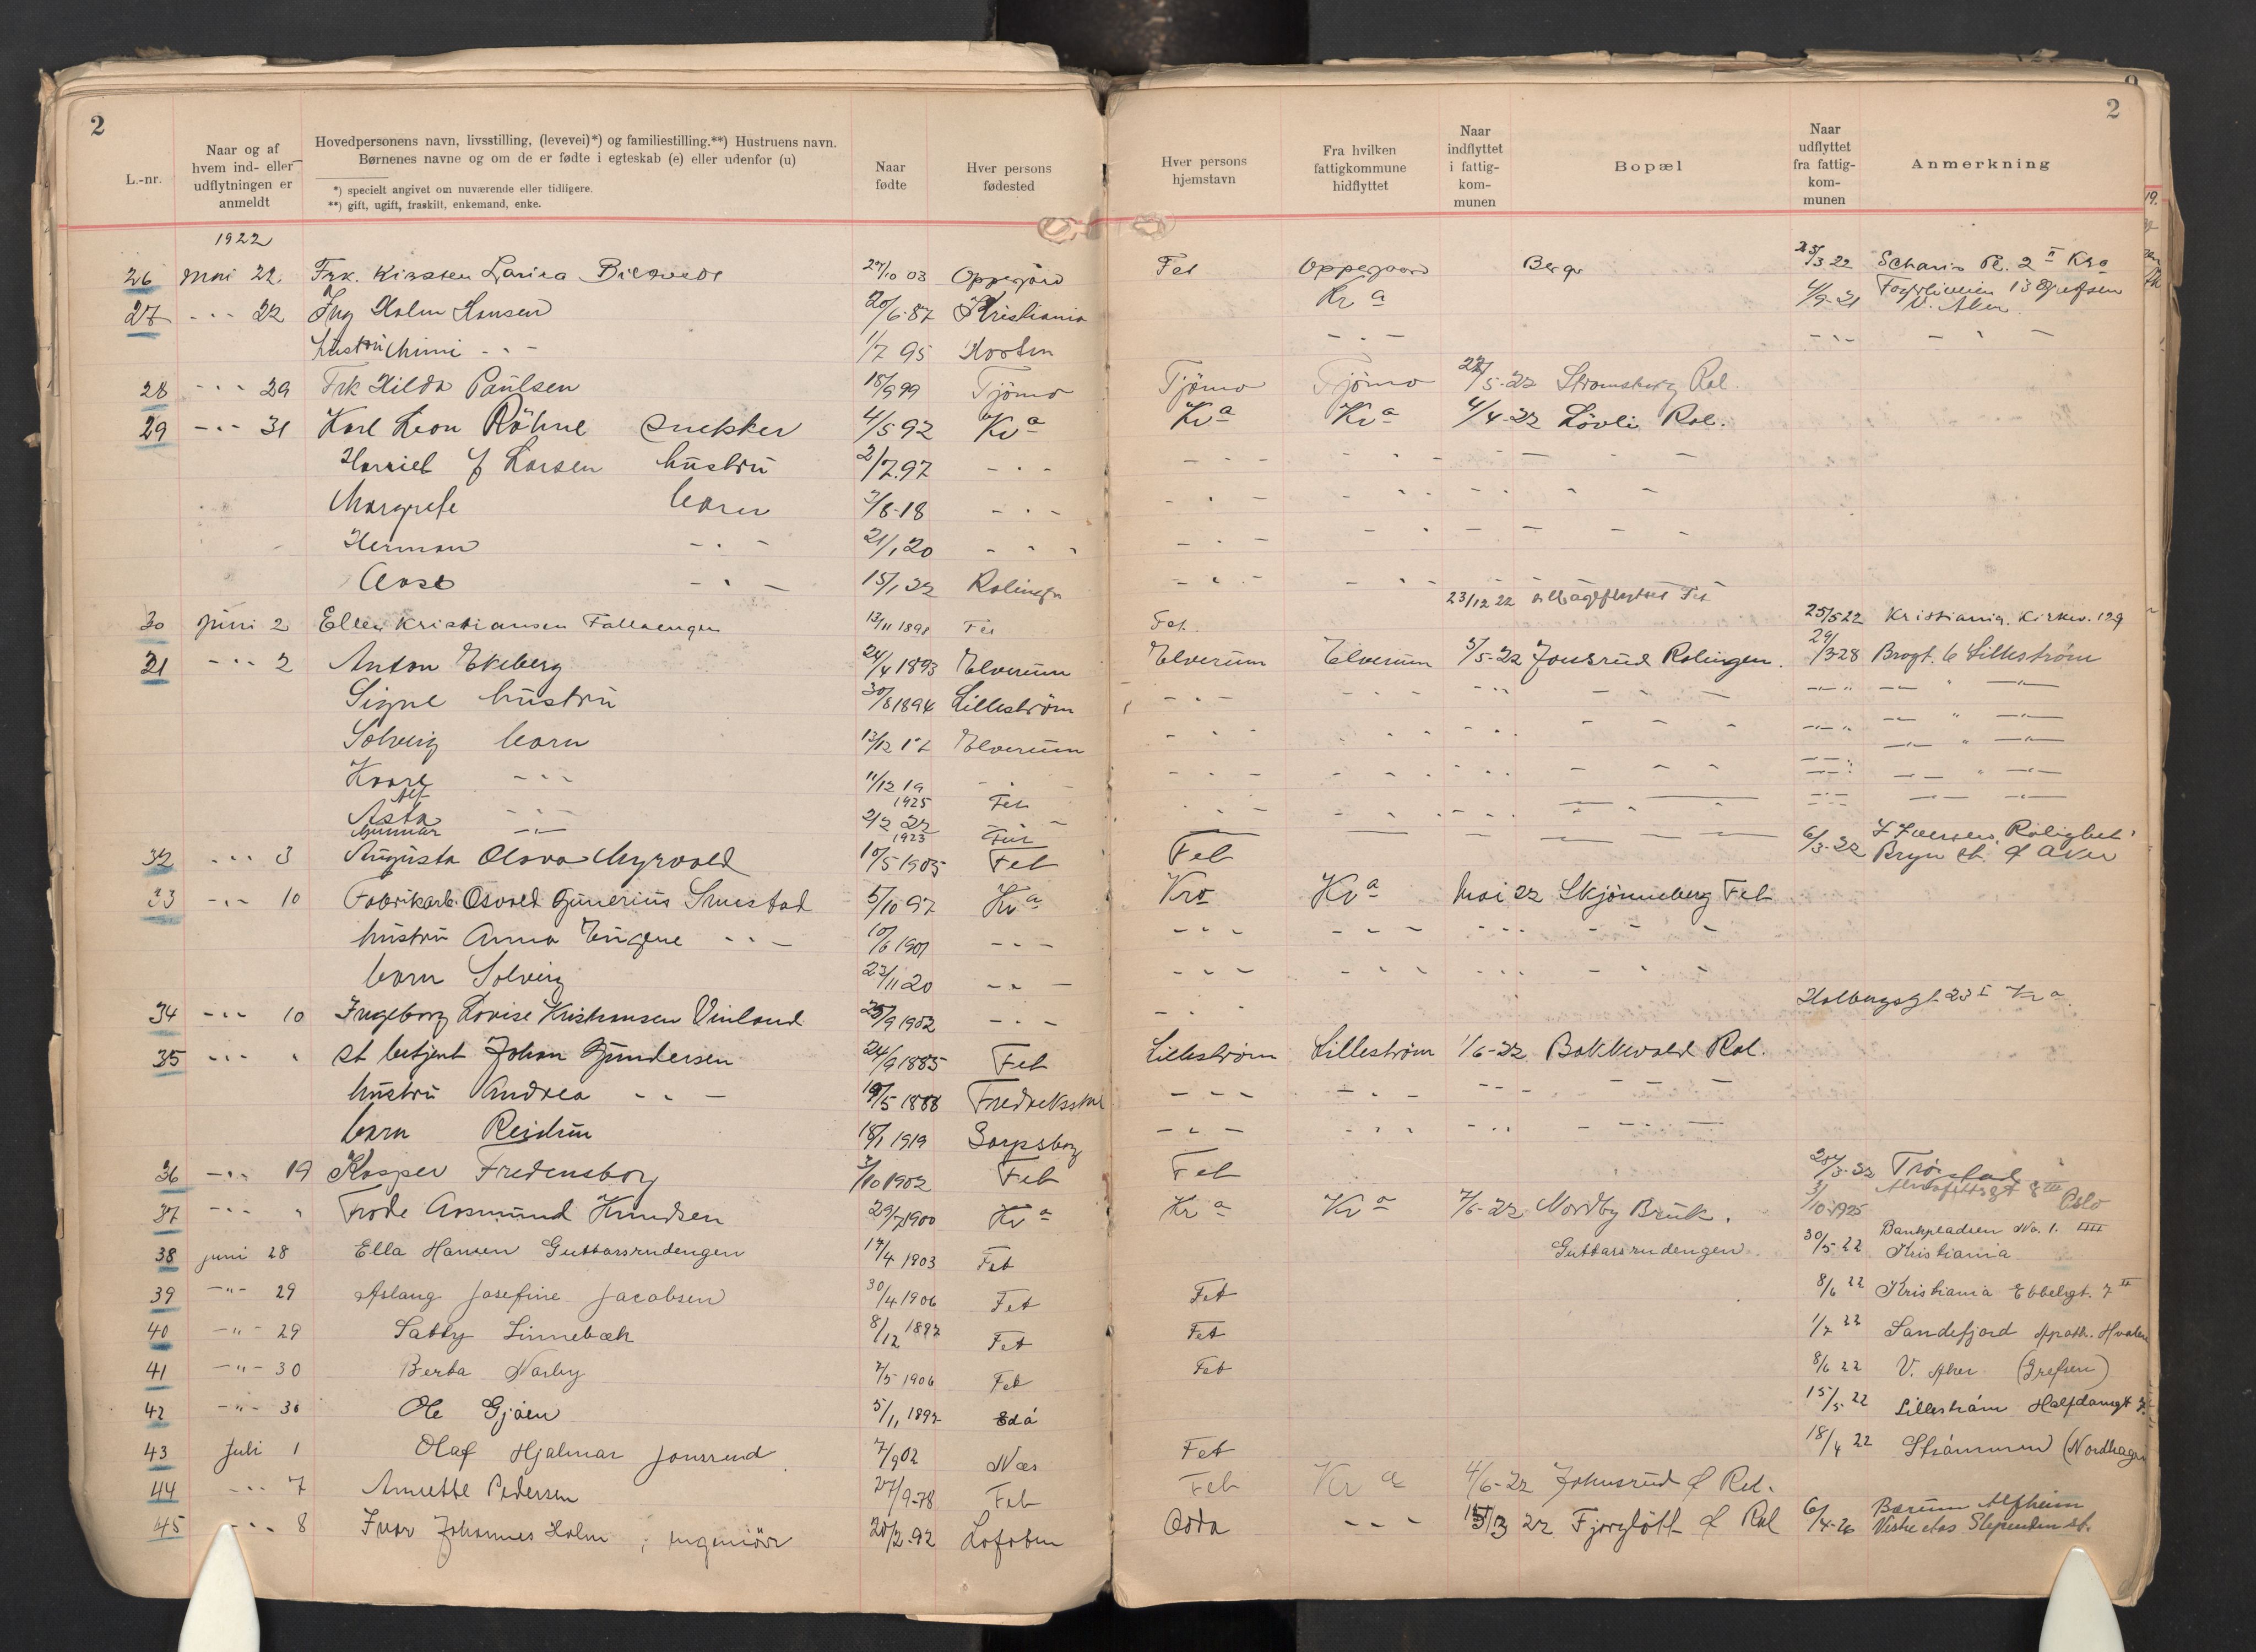 2
2
L.-nr.
Naar og af hvem ind- eller udflytningen er anmeldt
Hovedpersonens navn, livsstilling, (levevei)*) og familiestilling.**) Hustruens navn.
Børnenes navne og om de er fødte i egteskab (e) eller udenfor (u)
*) specielt angivet om nuværende eller tidligere.
**) gift, ugift, fraskilt, enkemand, enke.
Naar fødte
Hver persons fødested
Hver persons hjemstavn
Fra hvilken fattigkommune hidflyttet
Naar indflyttet i fattig-kom-munen
Bopæl
Naar udflyttet fra fattig-kom-munen
Anmerkning
1922
26 Mai 22. Frk. Kirsten 27/10 03 Oppegård Fet Oppegaard Berger 25/3 22 2 II Kra
27 - " - 22 Ing Holm Hansen 20/6-87 Kristiania Kr a 4/9-21 13 Grefsen V. Aker.
hustru Mimi - " - 1/7 95 Horten - " - - " - - " -
28 - " - 29 Frk Hilda Paulsen 18/9 99 Tjömo Tjömo Tjömo 22/5-22 Stromsberg Ral.
29 - " - 31 Karl Leon Röhne Snekker 4/5 92 Kr a Kr a Kr a 4/4-22 Lövli Ral.
Harriet f Larsen hustru 2/7.97 - " -
Margrete barn 7/8-18 - " -
Herman - " - 21/1 20 - " -
Aase - " - 15/1 22 Ralingen
23/12 22 tilbageflyttet Fet
30 juni 2 Ellen Kristiansen Fallaengen 13/11 1898 Fet Fet. 25/5 22 Kristiania. Kirkev. 129
31 - " - 2 Anton Ekeberg 24/4 1893 Elverum Elverum Elverum 5/5-22 Jonsrud Ralingen. 29/3-28 Brogt. 6 Lilleström
Signe hustru 30/8 1894 Lilleström
Solveig barn 13/12 17 Elverum
Kaare - " - 11/12 19 - " -
Alf 1925 Fet
Asta - " - 2/2 22 - " -
Gunnar - " - 1923 Fet
32 - " - 3 Augusta Olava Myrvold 10/5 1905 Fet Fet 6/3-22 Rolighet Bryn st. Ø Aker
33 - " - 10 Fabrikarb. Osvald Gunerius Smestad 5/10 97 Kr a Kra Kr a Mai 22 Skjönneberg Fet
hustru Anna Eugene - " - 10/6 1901 - " -
barn Solveig 23/11 20 - " -
34 - " - 10 Ingeborg Lovise Kristiansen Vinland 25/9 1902 - " - Holbergsgt 23 I Kr a.
35 - " - " st betjent Johan Gundersen 24/9 1885 Fet Lilleström Lilleström 1/6-22 Bakkevold Ral.
hustru Andrea - " - 19/5 1888 Fredriksstad
barn Reidun 18/1 1919 Sarpsborg
36 - " - 19 Kasper Fredensborg 3/10 1902 Fet Fet 24/3-22 Tröistad
37 - " - " Frode Aasmund Knudsen 29/7 1900 Kr a Kr a Kr a 7/6-22 Nordby Bruk. 3/10 1925 8 III Oslo
38 juni 28 Ella Hansen Guttarsrudengen 17/4 1903 Fet Guttarsrudengen 30/5 22 Bankpladsen No. 1. IIII Kristiania
39 - " - 29 Aslaug Josefine Jacobsen 30/4 1906 Fet Fet 8/6 22 Kristiania Ebbelsgt. 7 II
40 - " - 29 Linnebæk 8/12 1897 Fet Fet 1/7 22 Sandefjord Apoth. Hvalen
41 - " - 30 Berta Narby 7/5 1906 Fet Fet 8/6 22 V. Aker (Grefsen)
42 - " - 30 Ole Gjåen 5/11 1897 Edå 15/5 22 Lilleström Halfdansgt 7.
43 Juli 1 Olaf Hjalmar Jonsrud 7/9 02 Næs Fet 18/4 22 Strömmen (Nordhagen
44 - " - 7 Annette Pedersen 27/9-78 Fet Fet Kr a 4/6-22 Johnsrud Ø Ral.
45 - " - 8 Ivar Johannes Holm, ingeniör 20/2-92 Lofoten Odda - " - 15/3 22 Ø Ral 6/4-26 Bærum Alfheim Stependen st.